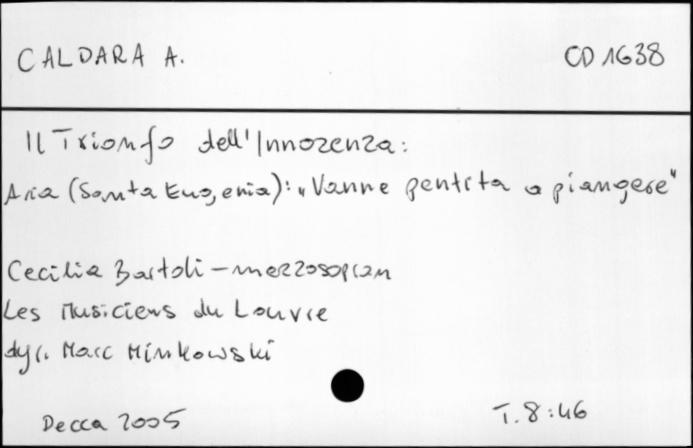 CALDARA A. CD 1638
Il Trionfo dell'Innozenza:
Aria (Santa Eugenia): „Vanne pentita a piangere"
Cecilia Bartoli – mezzosopran
Les Musiciens du Louvre
dyr. Marc Minkowski
Decca 2005 T. 8:46